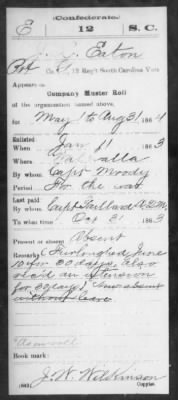 E
(Confederate.)
12 S. C.
J. Eaton
Pvt, Co. 12 Reg't South Carolina Vols
Appears on
Company Muster Roll
of the organization named above,
for May 1 to Aug 31, 1864
Enlisted:
When Jan 11, 1863
Where Walhalla
By whom Capt Moody
Period For the war
Last paid:
By whom Capt Gaillard A.Q.M.
To what time Dec 31, 1863
Present or absent Absent
Remarks: Furloughed June
10 for 30 days. Also
rec'd an extension
for 30 days. Now absent
without leave
Book mark:
J. W. Wilkinson
(642) Copyist.